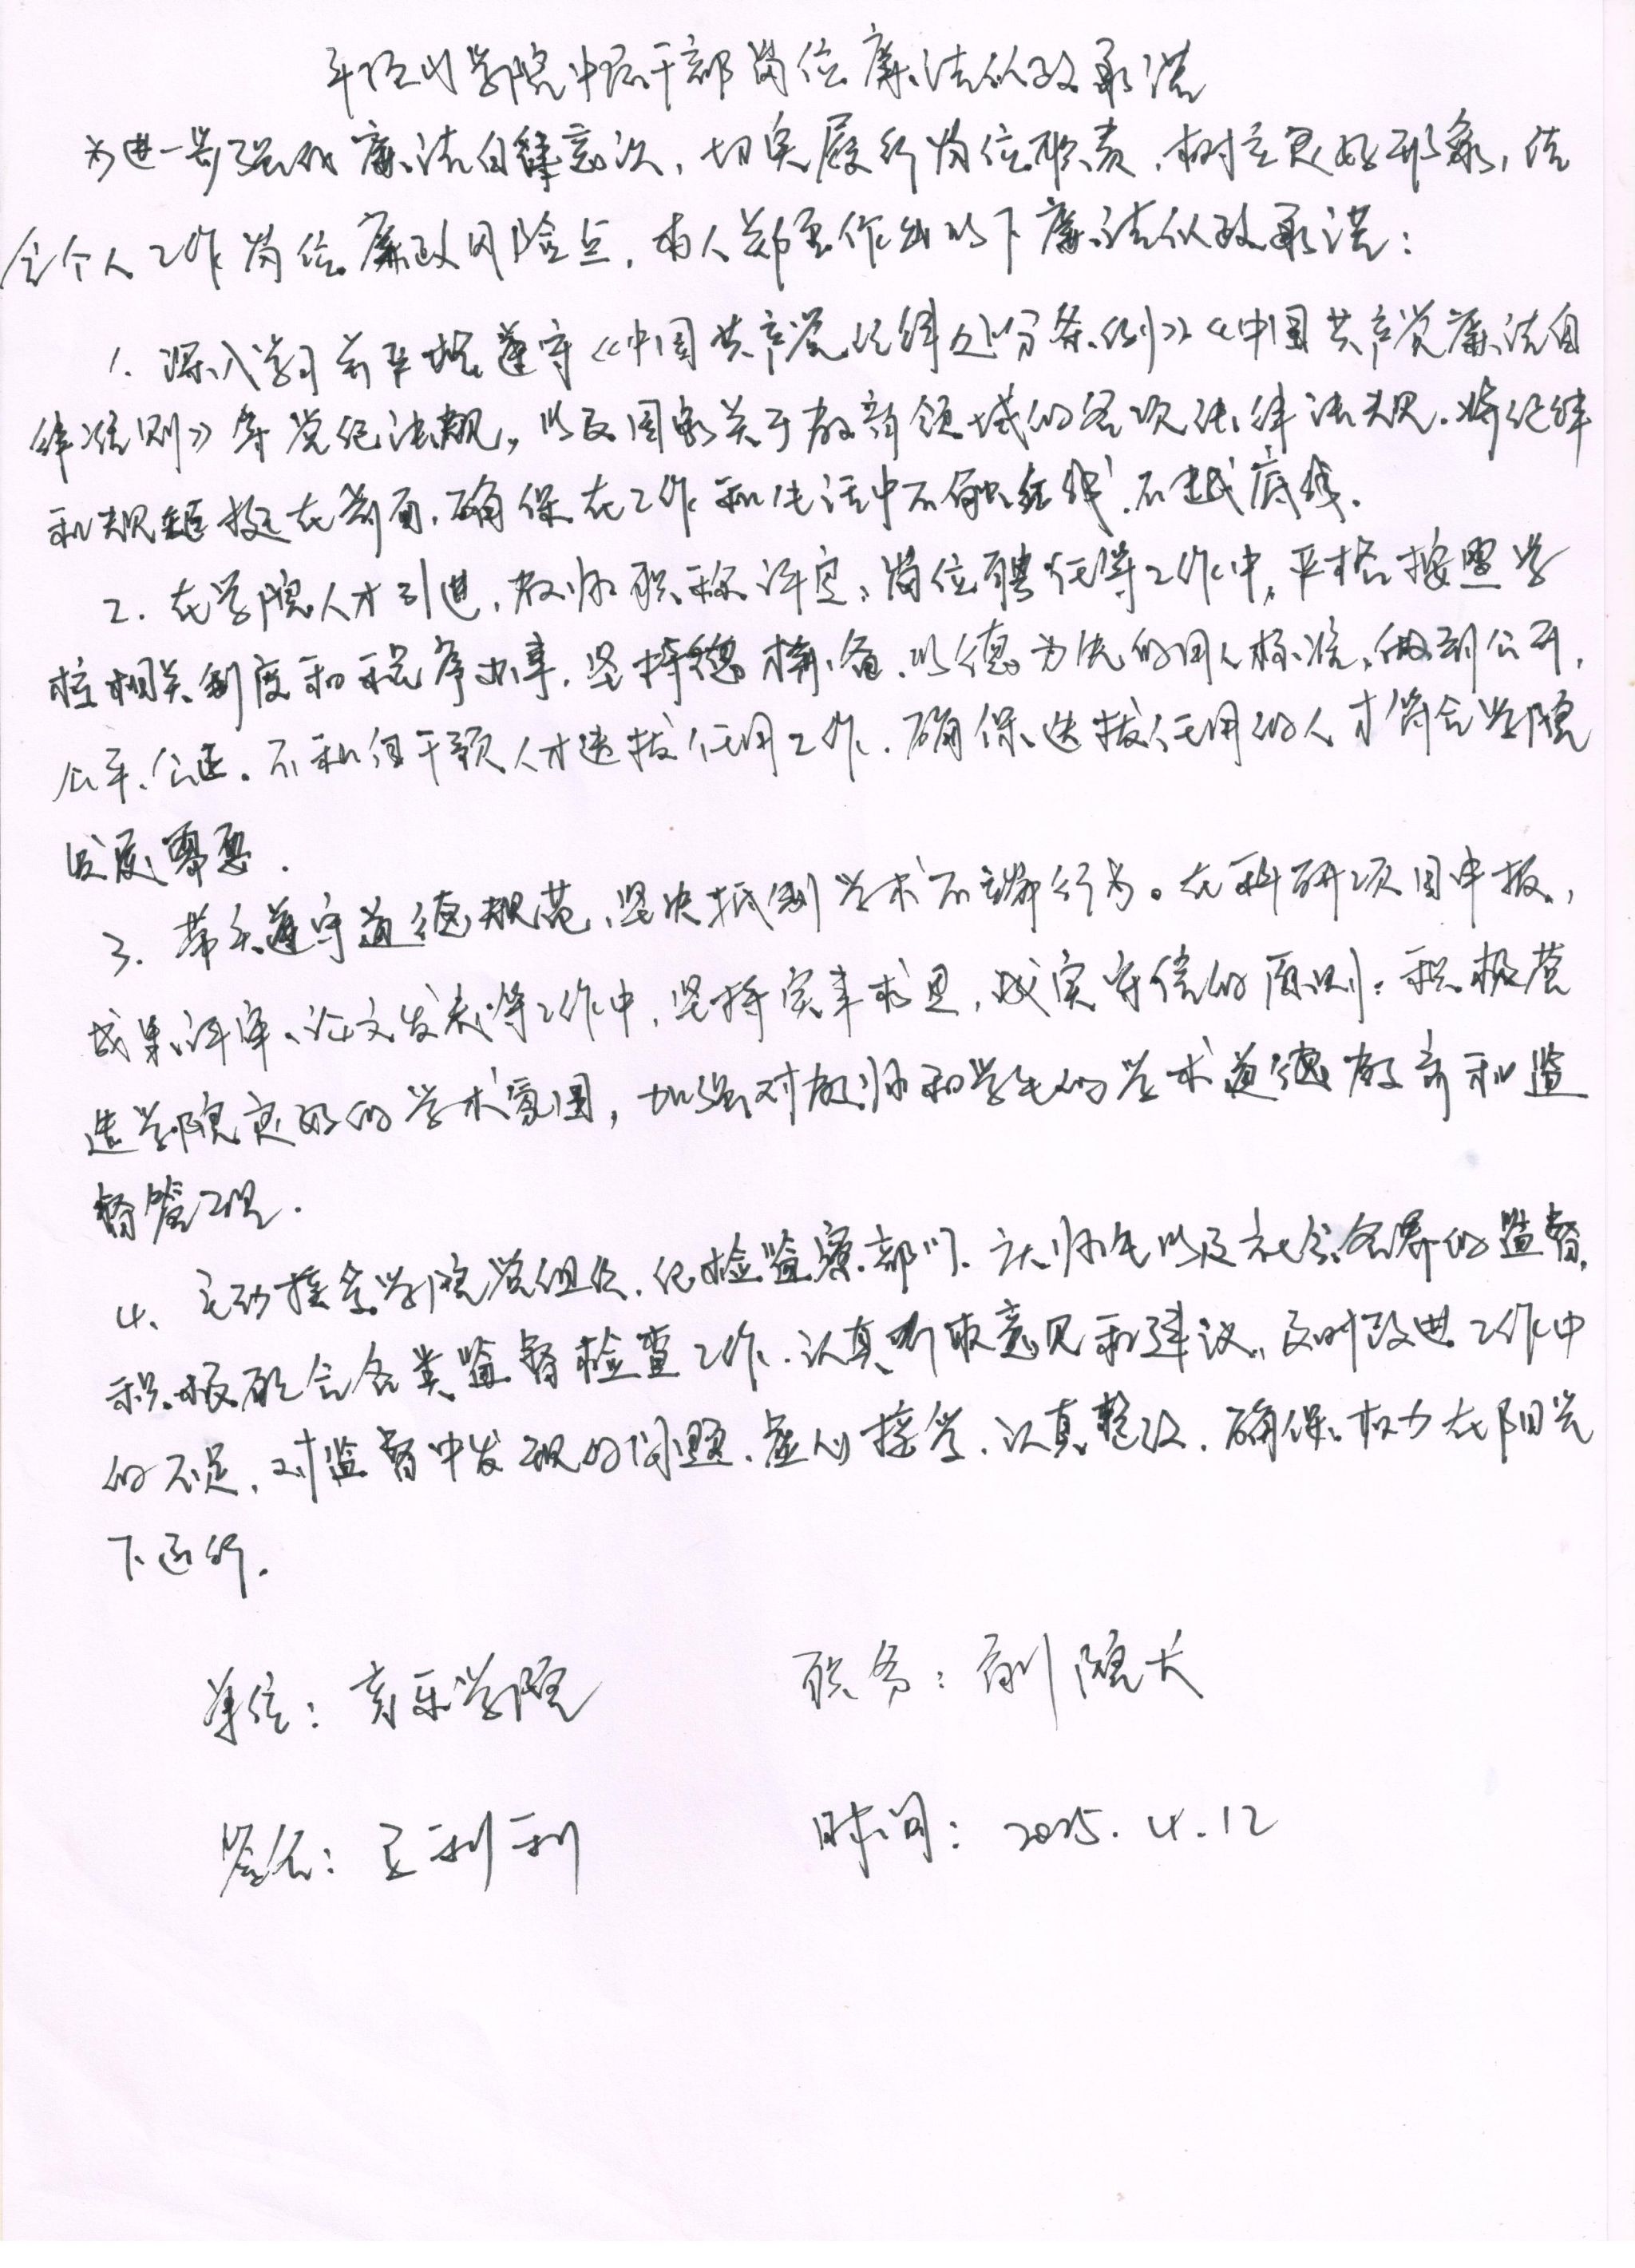 平顶山学院中层干部岗位廉洁从政承诺
为进一步强化廉洁自律意识,切实履行岗位职责,树立良好形象,结
合个人工作岗位廉政风险点,本人郑重作出以下廉洁从政承诺:
1. 深入学习并严格遵守《中国共产党纪律处分条例》《中国共产党廉洁自
律准则》等党纪法规,以及国家关于教育领域的各项法律法规.将纪律
和规矩挺在前面,确保在工作和生活中不触红线,不越底线.
2. 在学院人才引进,教师职称评定,岗位聘任等工作中,严格按照学
校相关制度和程序办事,坚持德才兼备,以德为先的用人标准,做到公开,
公平、公正。不私自干预人才选拔任用工作.确保选拔任用的人才符合学院
发展需要.
3. 带头遵守道德规范,坚决抵制学术不端行为。在科研项目申报,
成果评审、论文发表等工作中,坚持实事求是,诚实守信的原则;积极营
造学院良好的学术氛围,加强对教师和学生的学术道德教育和监
督管理.
4、主动接受学院党组织,纪检监察部门、广大师生以及社会各界的监督,
积极配合各类监督检查工作.认真听取意见和建议,及时改进工作中
的不足,对监督中发现的问题,虚心接受,认真整改,确保权力在阳光
下运行.
单位:音乐学院 职务:副院长
签名:王利利 时间:2025.4.12